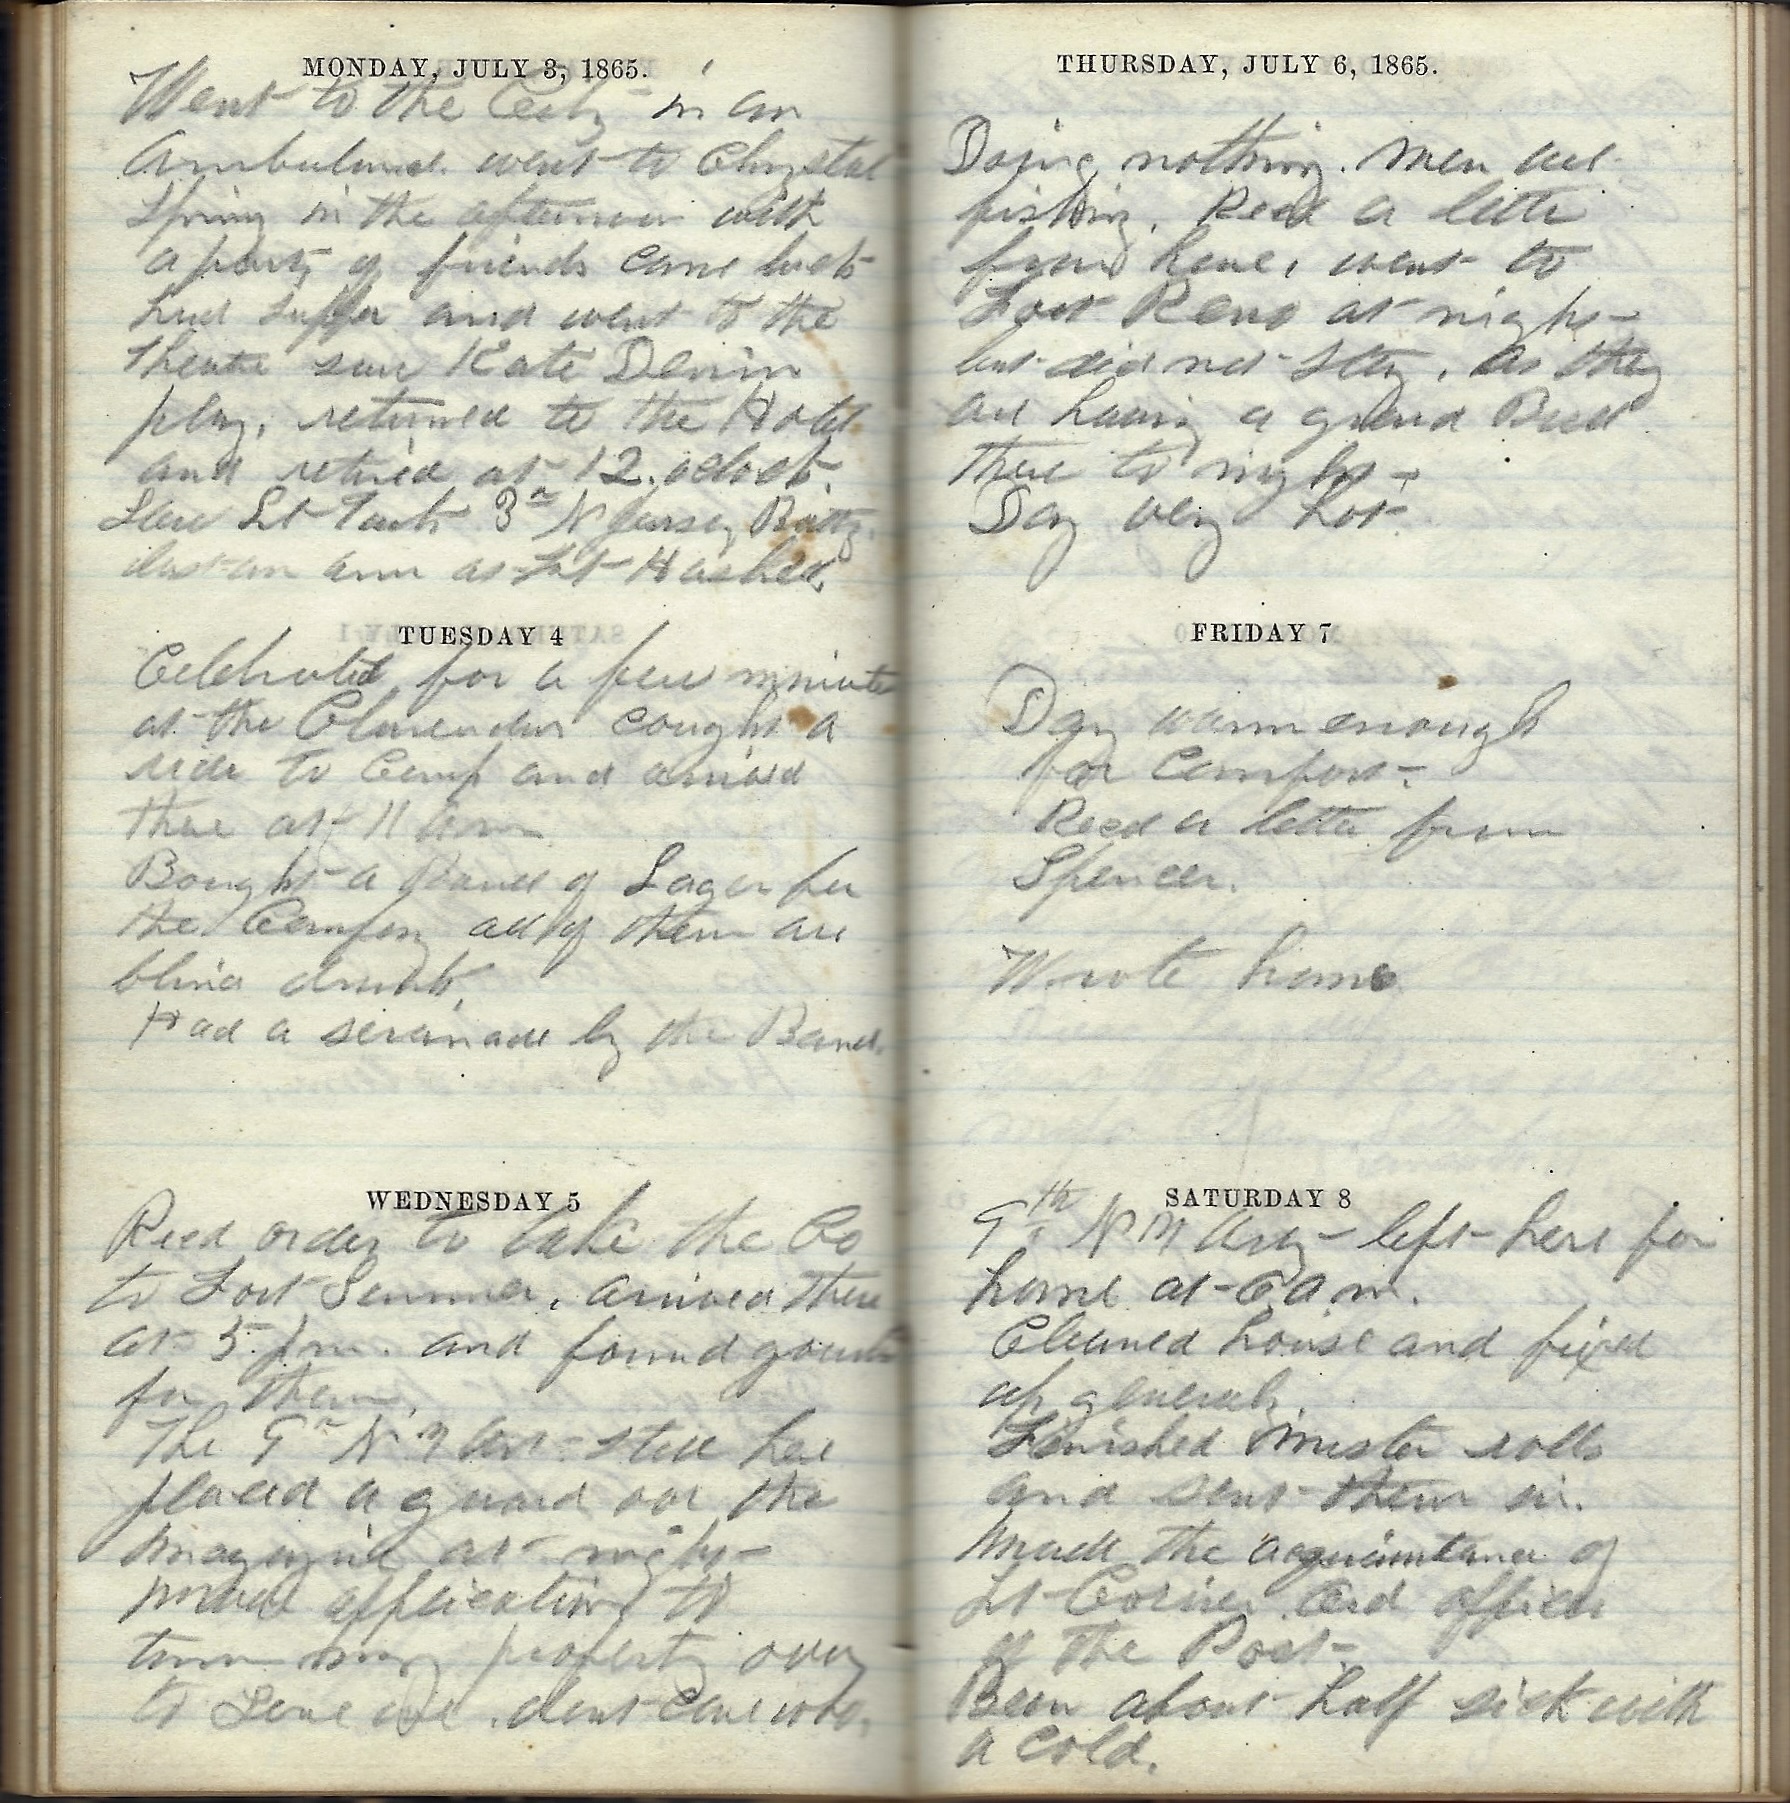 MONDAY, JULY 3, 1865.
Went to the City in an
Ambulance. went to Chrystal
Spring in the afternoon with
a party of friends came back
had supper and went to the
theatre saw Kate Denin
play. returned to the Hotel
and retired at 12. oclock.
Saw Lt 3d N Jersey Batty.
lost an arm as Lt
TUESDAY 4
Celebrated for a few minutes
at the Clarendon caught a
ride to Camp and arrived
there at 11 am
Bought a Barrel of Lager for
the Company all of them are
blind drunk.
Had a serenade by the Band.
WEDNESDAY 5
Recd orders to take the Co
to Fort Sumner. arrived there
at 5. pm. and found quarters
for them.
The 9th N Y Art. still here
placed a guard over the
magazine at night
made application to
turn my property over
to some one. dont care who.
THURSDAY, JULY 6, 1865.
Doing nothing. Men all
fishing. Recd a letter
from home, went to
Fort Reno at night
but did not stay. As they
are having a grand Ball
there to night.
Day very hot.
FRIDAY 7
Day warm enough
for Comfort.
Recd a letter from
Spencer.
Wrote home
SATURDAY 8
9th N Y Arty left here for
home at 6 a m.
Cleaned house and fixed
up generaly.
Finished Muster rolls
and sent them in.
Made the acquaintance of
Lt Ord officer
of the Post
Been about half sick with
a cold.